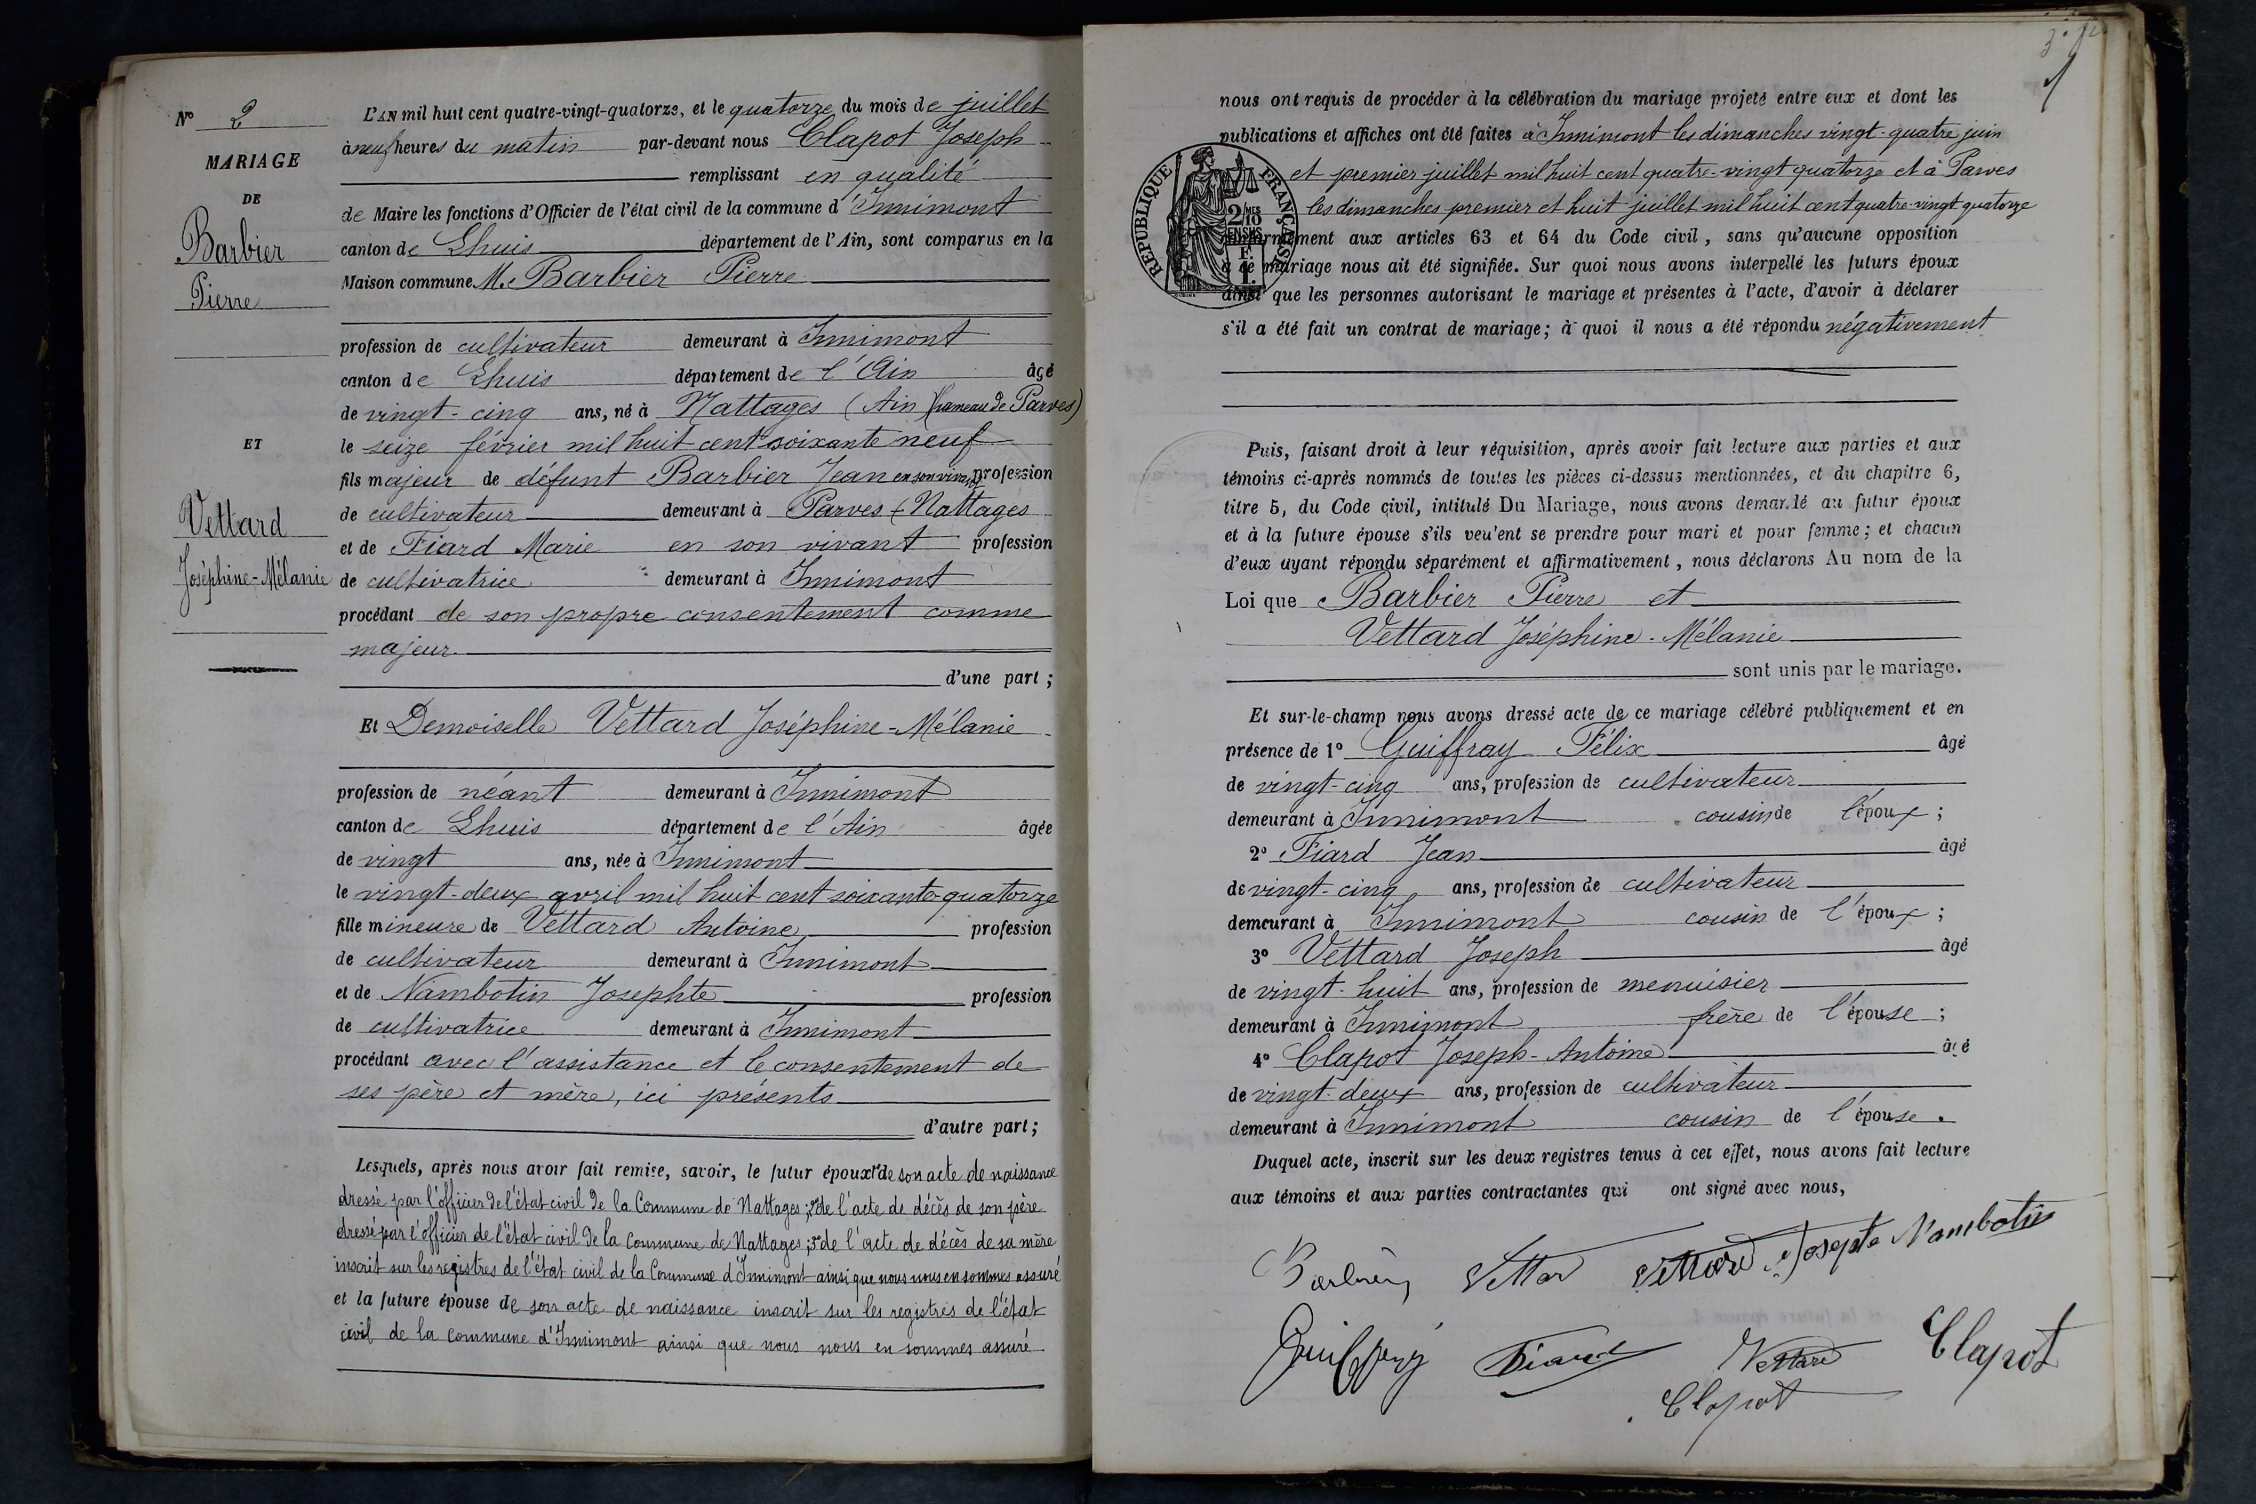 N° 2
MARIAGE
DE
Barbier
Pierre
ET
Vettard
Joséphine-Mélanie
L'AN mil huit cent quatre-vingt-quatorze, et le quatorze du mois de juillet
à neuf heures du matin par-devant nous Clapot Joseph
remplissant en qualité
de Maire les fonctions d'Officier de l'état civil de la commune d'Innimont
canton de Lhuis département de l'Ain, sont comparus en la
Maison commune M. Barbier Pierre
profession de cultivateur demeurant à Innimont
canton de Lhuis département de l'Ain âgé
de vingt-cinq ans, né à Nattages (Ain) (hameau de Parves)
le seize février mil huit cent soixante neuf
fils majeur de défunt Barbier Jean en son vivant profession
de cultivateur demeurant à Parves (Nattages
et de Fiard Marie en son vivant profession
de cultivatrice demeurant à Innimont
procédant de son propre consentement comme
majeur.
d'une part ;
Et Demoiselle Vettard Joséphine-Mélanie
profession de néant demeurant à Innimont
canton de Lhuis département de l'Ain âgée
de vingt ans, née à Innimont
le vingt-deux avril mil huit cent soixante-quatorze
fille mineure de Vettard Antoine profession
de cultivateur demeurant à Innimont
et de Nambotin Josephte profession
de cultivatrice demeurant à Innimont
procédant avec l'assistance et le consentement de
ses père et mère, ici présents
d'autre part ;
Lesquels, après nous avoir fait remise, savoir, le futur époux 1° de son acte de naissance
dressé par l'officier de l'état-civil de la Commune de Nattages ; 2° de l'acte de décès de son père
dressé par l'officier de l'état civil de la Commune de Nattages ; 3° de l'acte de décès de sa mère
inscrit sur les registres de l'état civil de la Commune d'Innimont ainsi que nous nous en sommes assuré
et la future épouse de son acte de naissance inscrit sur les registres de l'état
civil de la commune d'Innimont ainsi que nous nous en sommes assuré
nous ont requis de procéder à la célébration du mariage projeté entre eux et dont les
publications et affiches ont été faites à Innimont les dimanches vingt-quatre juin
et premier juillet mil huit cent quatre-vingt quatorze et à Parves
les dimanches premier et huit juillet mil huit cent quatre-vingt quatorze
RÉPUBLIQUE FRANÇAISE
2/10 EN SUS
1 F.
conformément aux articles 63 et 64 du Code civil, sans qu'aucune opposition
à ce mariage nous ait été signifiée. Sur quoi nous avons interpellé les futurs époux
ainsi que les personnes autorisant le mariage et présentes à l'acte, d'avoir à déclarer
s'il a été fait un contrat de mariage ; à quoi il nous a été répondu négativement
Puis, faisant droit à leur réquisition, après avoir fait lecture aux parties et aux
témoins ci-après nommés de toutes les pièces ci-dessus mentionnées, et du chapitre 6,
titre 5, du Code civil, intitulé Du Mariage, nous avons demandé au futur époux
et à la future épouse s'ils veulent se prendre pour mari et pour femme ; et chacun
d'eux ayant répondu séparément et affirmativement, nous déclarons Au nom de la
Loi que Barbier Pierre et
Vettard Joséphine-Mélanie
sont unis par le mariage.
Et sur-le-champ nous avons dressé acte de ce mariage célébré publiquement et en
présence de 1° Guiffray Félix âgé
de vingt-cinq ans, profession de cultivateur
demeurant à Innimont cousin de l'époux ;
2° Fiard Jean âgé
de vingt-cinq ans, profession de cultivateur
demeurant à Innimont cousin de l'époux ;
3° Vettard Joseph âgé
de vingt-huit ans, profession de menuisier
demeurant à Innimont frère de l'épouse ;
4° Clapot Joseph-Antoine âgé
de vingt-deux ans, profession de cultivateur
demeurant à Innimont cousin de l'épouse.
Duquel acte, inscrit sur les deux registres tenus à cet effet, nous avons fait lecture
aux témoins et aux parties contractantes qui ont signé avec nous,
Vettar Vettard Josepte Nambotin
Fiard Vettard Clapot
Clapot